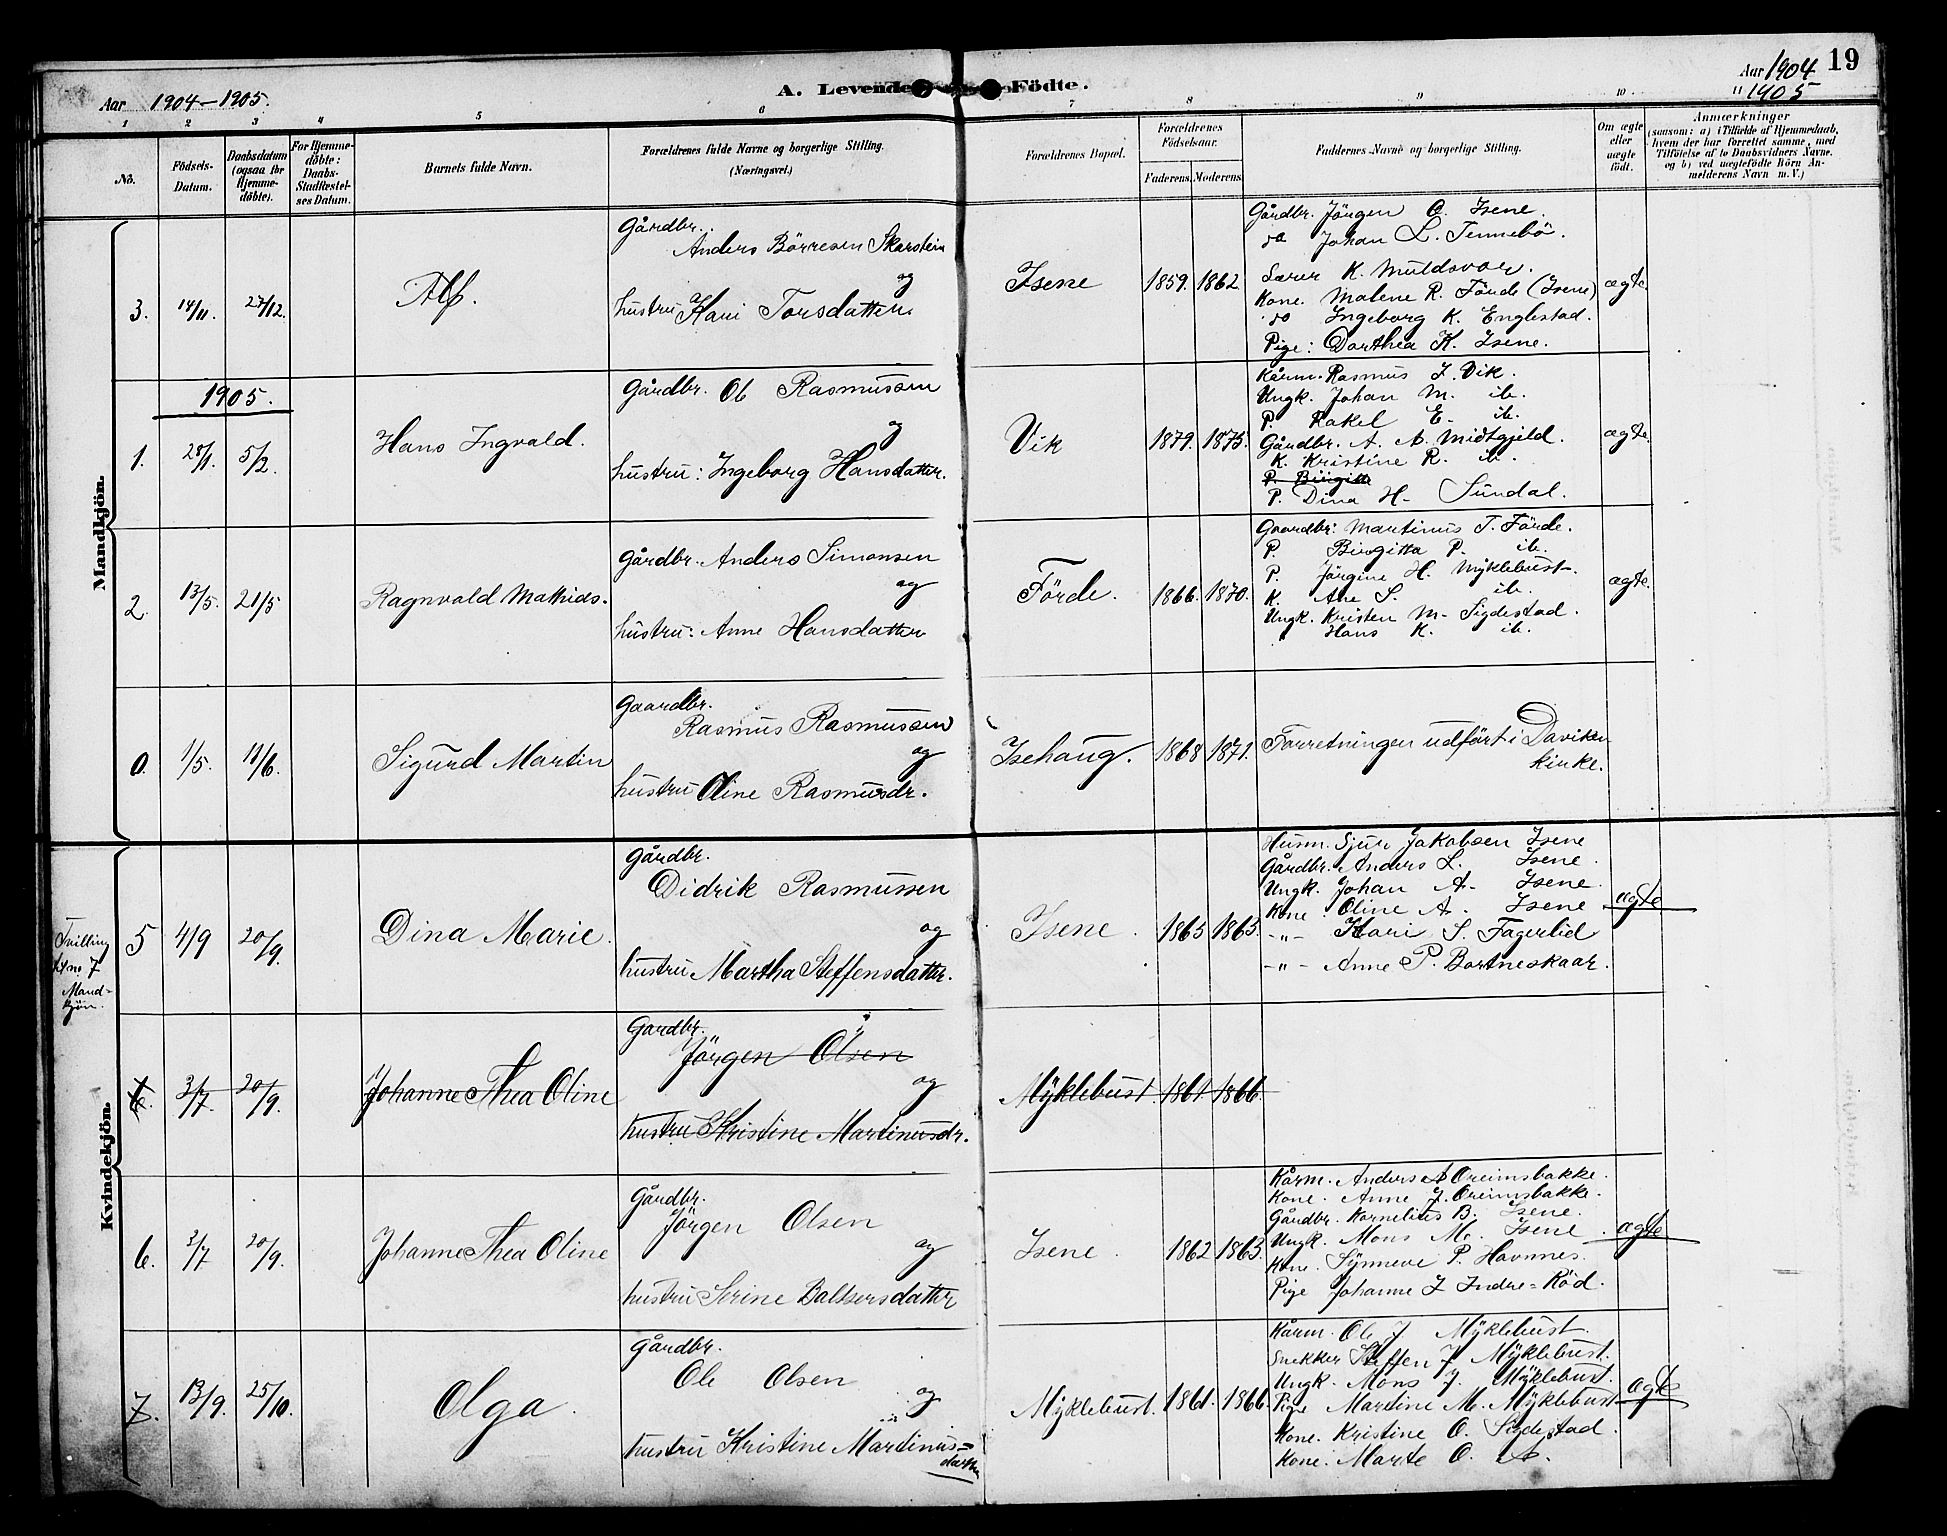 Aar 1904-1905.
A. Levende Födte.
Aar 1904
" 1905
19
1 2 3 4 5 6 7 8 9 10
No.
Födsels-Datum.
Daabsdatum (ogsaa for Hjemmedöbte).
For Hjemmedöbte: Daabs-Stadfestelses Datum.
Barnets fulde Navn.
Forældrenes fulde Navne og borgerlige Stilling.
(Næringsvei.)
Forældrenes Bopæl.
Forældrenes Födselsaar.
Faderens. Moderens.
Faddernes Navne og borgerlige Stilling.
Om ægte eller uægte födt.
Anmærkninger
(saasom: a) i Tilfælde af Hjemmedaab,
hvem der har forrettet samme, med
Tilföielse af to Daabsvidners Navne.
og b) ved uægtefödte Börn An-
melderens Navn m.V.)
Mandkjön.
3. 14/11 27/12. Alf.
Gårdbr.
Anders Börresen Skarstein
og
hustru Kari Torsdatter
Isene 1859. 1862
Gårdbr. Jörgen O. Isene.
do Johan L. Tennebö.
Lærer K. Muldsvor.
Kone. Malene R. Förde (Isene)
do Ingeborg K. Englestad.
Pige: Dorthea K. Isene.
ægte.
1905.
1. 28/1. 5/2. Hans Ingvald.
Gårdbr. Ol Rasmussen
og
hustru: Ingeborg Hansdatter.
Vik 1879. 1875.
Kårm. Rasmus J. Vik.
Ungk. Johan M. ib.
P. Rakel E. ib.
Gårdbr. A. A. Midtgjeld.
K. Kristine R. ib.
P. Birgitte
P. Dina H- Sundal.
ægte.
2. 13/5. 21/5 Ragnvald Mathias.
Gårdbr. Anders Simonsen
og
hustru: Anne Hansdatter
Förde. 1866. 1870.
Gaardbr: Martinus T. Förde.
P. Birgitta P. ib.
P. Jörgine H. Myklebust-
K. Ane S. ib.
Ungk. Kristen M- Sigdestad.
Hans K. ib.
ægte.
0. 1/5. 11/6. Sigurd Martin
Gaardbr.
Rasmus Rasmussen
og
hustru Oline Rasmusdr.
Isehaug. 1868 1871.
Forretningen udfört i Daviken
kirke.
Kvindekjön.
Tvilling
til no 7
Mand-
kjön.
5 4/9 20/9. Dina Marie.
Gårdbr.
Didrik Rasmussen
og
hustru Martha Steffensdatter.
Isene. 1865 1863.
Husm. Sjur Jakobsen Isene
Gårdbr. Anders L. Isene.
Ungk. Johan A- Isene.
Kone. Oline A. Isene
-"- Kari S. Fagerlid
-"- Anne P. Bortneskaar.
ægte
6. 3/7. 20/9. Johanne Thea Oline
Gardbr.
Jörgen Olsen
og
hustru Kristine Martinusdr.
Myklebust. 1861 1866.
6. 3/7 20/9. Johanne Thea Oline
Gårdbr.
Jörgen Olsen
og
hustru Serine Baltsersdatter
Isene. 1862 1863.
Kårm. Anders A Oreimsbakke.
Kone. Anne J. Oreimsbakke.
Gårdbr. Kornelius B. Isene.
Ungk. Mons M. Isene.
Kone. Synneve P. Havnnes.
Pige Johanne I Indre-Röd.
ægte
7. 13/9. 25/10. Olga.
Gårdbr.
Ole Olsen
og
hustru Kristine Martinus=
datter
Myklebust. 1861. 1866.
Kårm. Ole J Myklebust.
Snekker Steffen J Myklebust.
Ungk. Mons J. Myklebust.
Pige Martine M. Myklebust
Kone. Kristine O. Sigdestad.
Kone. Marte O.
ægte